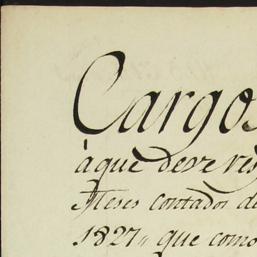 Cargos
à que deve res
Meses contados de
1827,, que como